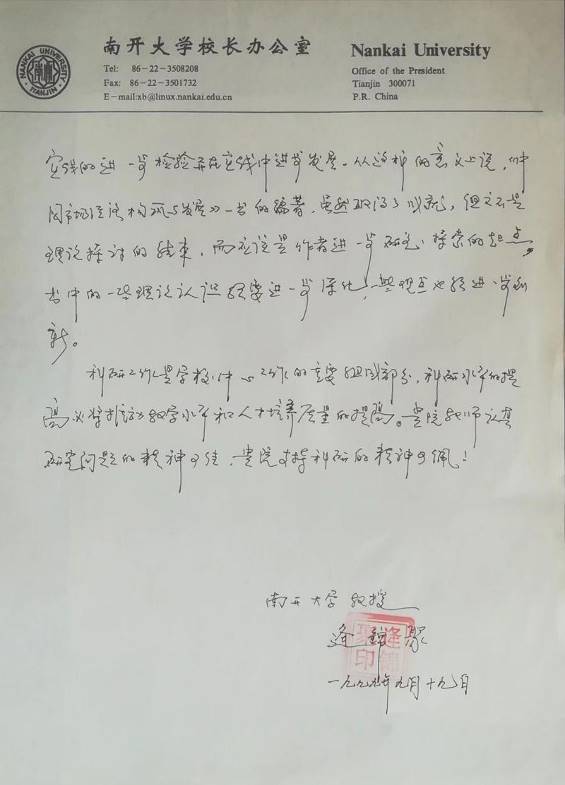 NANKAI UNIVERSITY
TIANJIN
南开大学校长办公室
Tel: 86-22-3508208
Fax: 86-22-3501732
E-mail:xb@linux.nankai.edu.cn
Nankai University
Office of the President
Tianjin 300071
P.R. China
实践的进一步检验并在实践中进步发展。从这种的意义上说,《中
国市场经济构筑与发展》一书的编著,虽然取得了成就,但这不是
理论探讨的结束,而应该是作者进一步研究、探索的起点。
书中的一些理论认识须要进一步深化,一些观点也须进一步创
新。
科研工作是学校中心工作的重要组成部分,科研水平的提
高必将推动教学水平和人才培养质量的提高。贵院教师认真
研究问题的精神可佳,贵院支持科研的精神可佩!
南开大学 教授
逄锦聚
逄锦聚印
一九九九年九月十九日